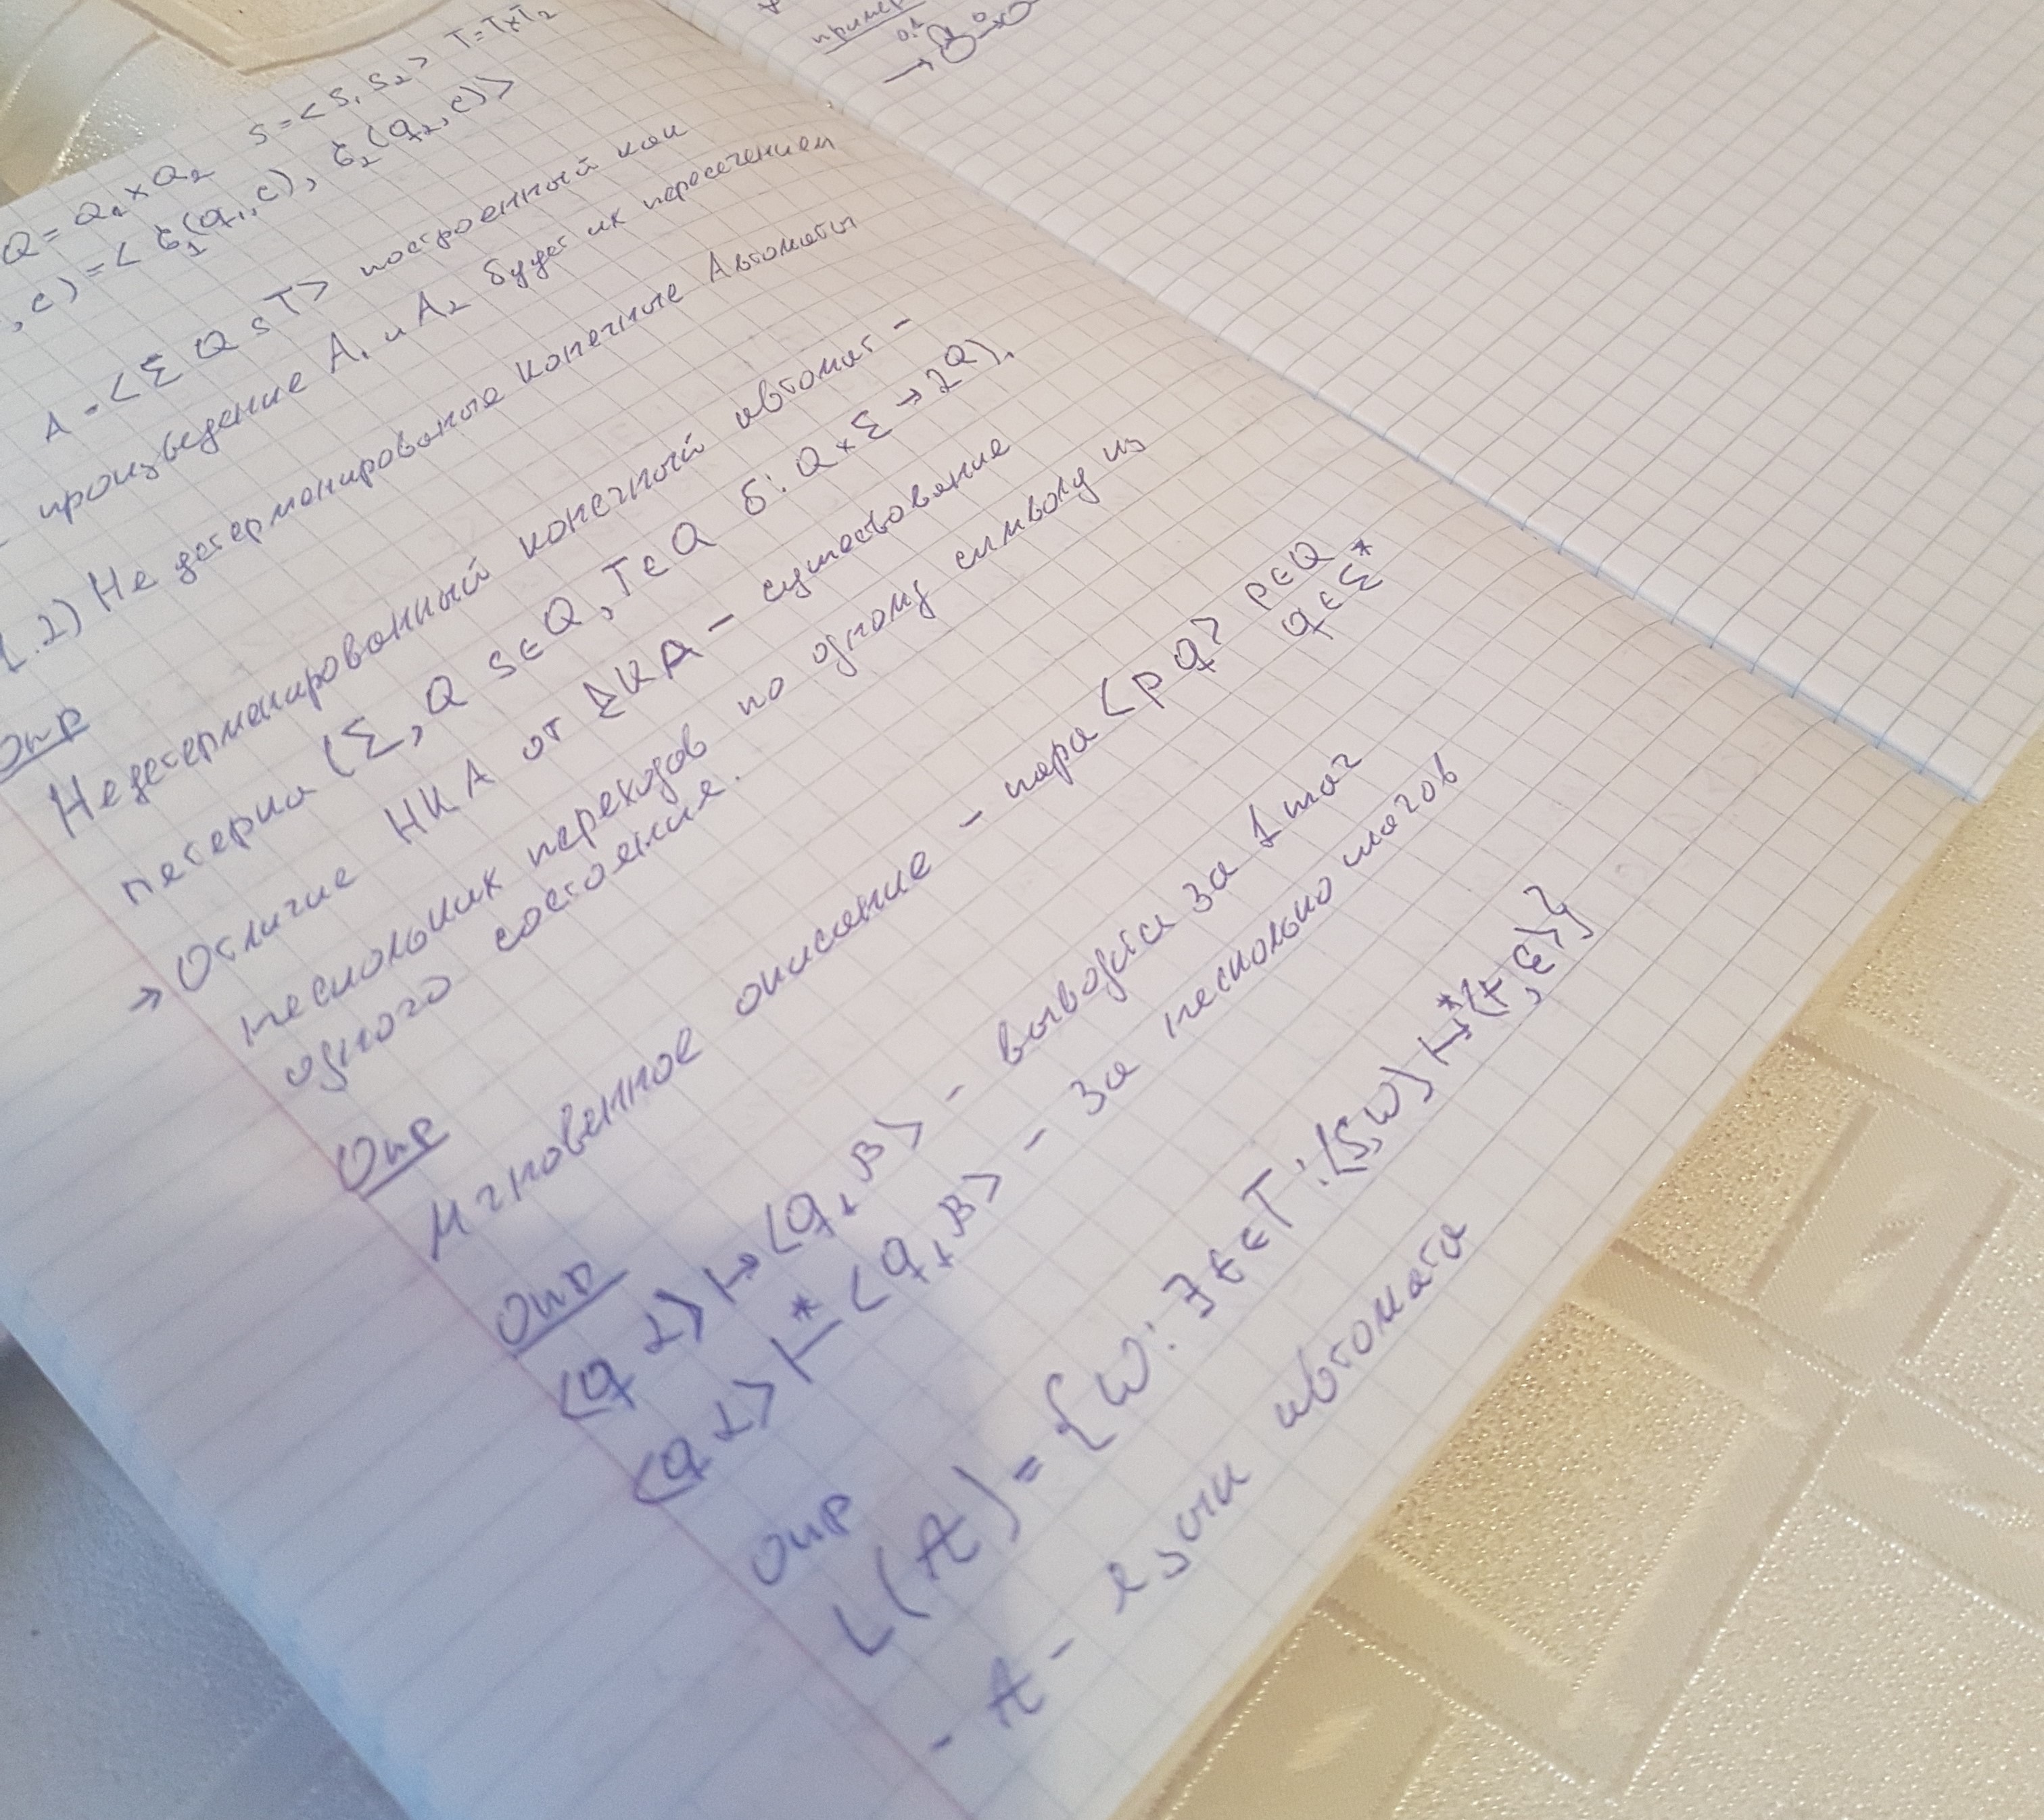 Q = Q₁ × Q₂ S = < S₁ S₂ > T = T₁×T₂
, c) = < δ₁(q₁, c), δ₂(q₂, c) >
A = < Σ Q S T > построенный как
произведение A₁ и A₂ будет их пересечением
1.2) Не детерминированые Конечные Автоматы
Опр
Недетерминированный конечный автомат -
петерка (Σ, Q S∈Q, T∈Q δ: Q×Σ → 2^Q).
→ Отличие НКА от ДКА - существование
нескольких переходов по одному символу из
одного состояние.
Опр
Мгновенное описание - пара <p q> p∈Q
q∈Σ*
Опр
<q α> ⊢ <q₁ β> - выводся за 1 шаг
<q α> ⊢* <q₁ β> - за несколько шагов
Опр
L(A) = {w: ∃ t∈T: <S, w> ⊢* <t, ε>}
- A - язык автомата
пример
0,1 0